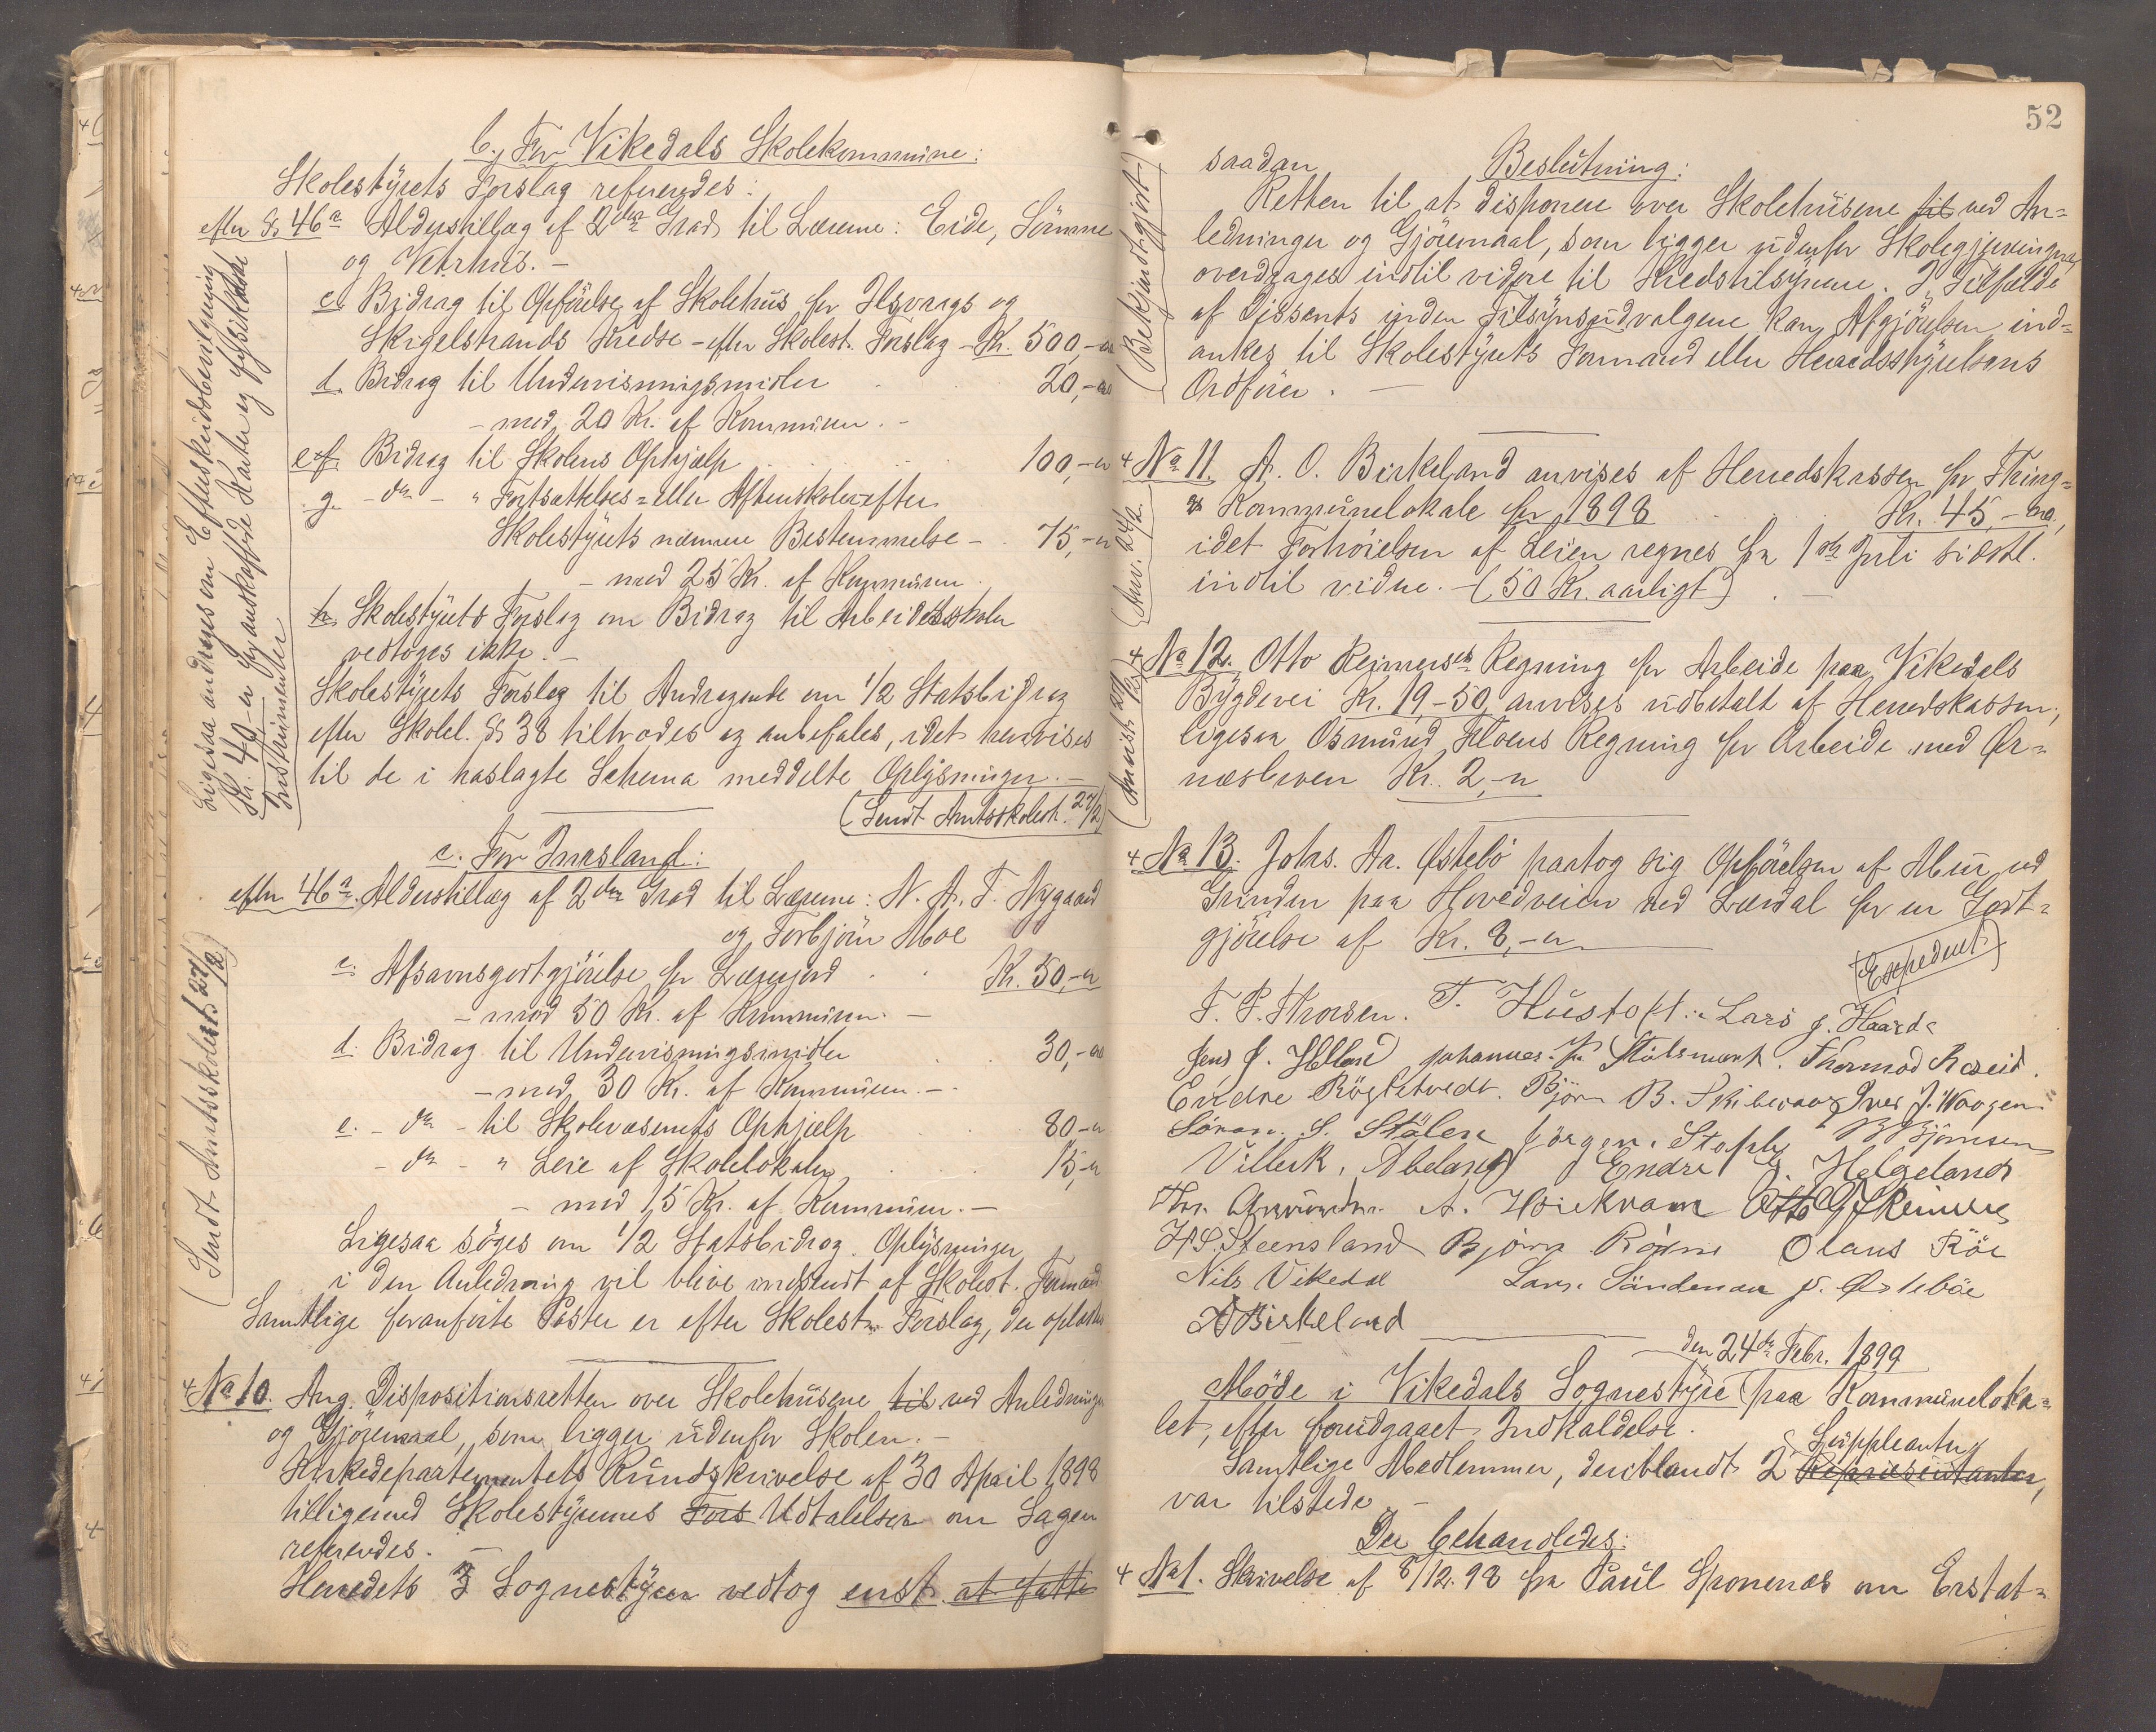 b. For Vikedals Skolekommune:
Skolestyrets Forslag refereredes:
efter § 46a Alderstillæg af 2den Grad til Lærerne: Eide, Sömme
og Vetrhus. –
c. Bidrag til Opförelse af Skolehus for Ilsvaags og
Skigelstrands Kredse – efter Skolest. Forslag – Kr. 500,–
d. Bidrag til Undervisningsmidler . . 20,–
– mod 20 Kr. af Kommunen. –
e&f. Bidrag til Skolens Ophjælp . . . 100,–
g. – do – " Fortsættelses= eller Aftenskoler efter
Skolestyrets nærmere Bestemmelse – . 75,–
– mod 25 Kr. af Kommunen.
h. Skolestyrets Forslag om Bidrag til Arbeidsskoler
vedtoges ikke. –
Skolestyrets Forslag til Andragende om 1/2 Statsbidrag
efter Skolel. § 38 tiltrædes og anbefales, idet henvises
til de i haslagte Schema meddelte Oplysninger. –
(Sendt Amtsskolest. 27/2)
Ligesaa andrages om Efterskudsbevilgning
Kr. 40 for anskaffede Karter og fysikalske
Instrumenter
c. For Imsland:
efter 46a. Alderstillæg af 2den Grad til Lærerne: N. A. T. Nygaard
og Torbjörn Moe
c. Afsavnsgodtgjörelse for Lærerjord . . Kr. 50,–
– mod 50 Kr. af Kommunen. –
d. Bidrag til Undervisningsmidler . . 30,–
– mod 30 Kr. af Kommunen. –
e. – do – til Skolevæsenets Ophjælp . . 80–
– do – " Leie af Skolelokaler . . . 15,–
– mod 15 Kr. af Kommunen. –
Ligesaa söges om 1/2 Statsbidrag. Oplysninger
i den Anledning vil blive indsendt af Skolest. Formand.
Samtlige foranförte Poster er efter Skolest. Forslag, der oplæstes
(Sendt Amtsskolest. 27/2)
No 10. Ang. Dispositionsretten over Skolehusene til ved Anledninger
og Gjöremaal, som ligger udenfor Skolen. –
Kirkedepartementets Rundskrivelse af 30 April 1898
tilligemed Skolestyrernes Fors Udtalelser om Sagen
refereredes. –
Herredets 3 Sognestyrer vedtog enst. at fatte
52
saadan Beslutning:
Retten til at disponere over Skolehusene til ved An=
ledninger og Gjöremaal, som ligger udenfor Skolegjerningen,
overdrages indtil videre til Kredstilsynene. I Tilfælde
af Dissents inden Tilsynsudvalgene kan Afgjörelsen ind=
ankes til Skolestyrets Formand eller Herredsstyrelsens
Ordförer. –
(Bekjendtgjort)
No 11. A. O. Birkeland anvises af Herredskassen for Thing=
& Kommunelokale for 1898 . . Kr. 45,–
idet Forhöielsen af Leien regnes fra 1ste Juli sidstl.
indtil videre. – (50 Kr. aarligt) . –
(Anv. 24/2.
No 12. Otto Reimersen Regning for Arbeide paa Vikedals
Bygdevei Kr. 19,–50, anvises udbetalt af Herredskassen,
ligesaa Osmund Floens Regning for Arbeide med Ør=
næsleren Kr. 2,–
(Anvist 27/2)
No 13. Johs. Aa. Østebö paatog sig Opförelsen af Mur ved
Grinden paa Hovedveien ved Lærdal for en Godt=
gjörelse af Kr. 8,–
(Expederet.)
T. P. Thorsen. T. Hustoft. Lars J. Haarde
Jens J. Helland Johannes Stölsmark. Thormod Raseid.
Endre Rögtvedt. Björn B. Skiberaag Iver J. Waagen.
Sören. S. Stölen Jörgen. Stople B Björnsen
Villerk. Abeland Endre J. Helgeland
Ths. Amundsen. A. Höiekvam Otto G Reimers
H. S. Steensland Bjørn Rönne Olaus Röe
Nils Vikedal Lars. Söndenaa J. Østeböe
A Birkeland
den 24de Febr. 1899
Möde i Vikedals Sognestyre paa Kommuneloka=
let, efter foudgaaet Indkaldelse.
Samtlige Medlemmer, deriblandt 2 Repræsentanter, Suppleanter
var tilstede. –
Der behandledes:
No 1. Skrivelse af 8/12. 98 fra Paul Sponenæs om Erstat=